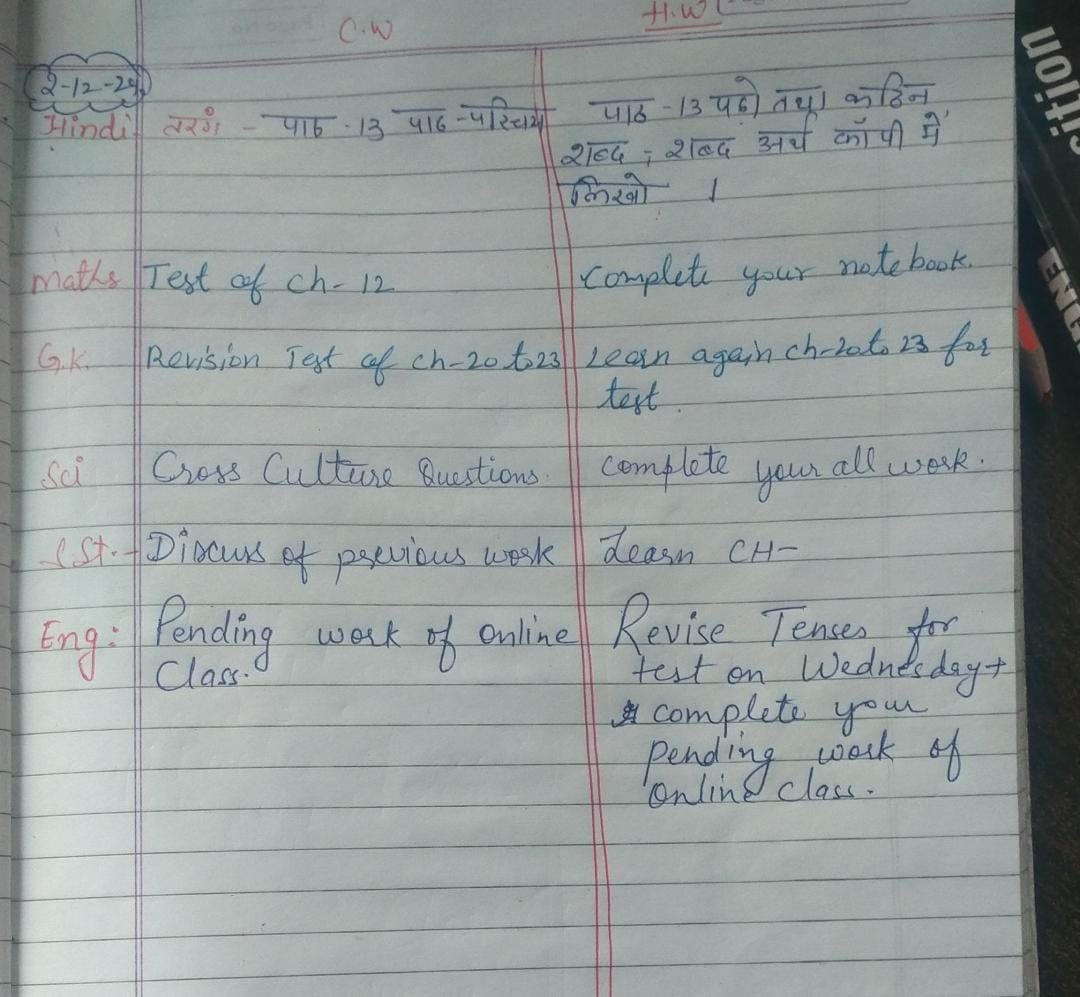 C.W H.W
2-12-24
Hindi तरंग - पाठ - 13 पाठ - परिचय पाठ - 13 पढ़ो तथा कठिन
शब्द ; शब्द अर्थ कॉपी में
लिखो ।
Maths Test of ch- 12 Complete your notebook.
G.K. Revision Test of ch-20 to 23 Learn again ch-20 to 23 for
test.
Sci Cross Culture Questions. Complete your all work.
S.St. - Discuss of previous work Learn CH-
Eng: Pending work of Online Revise Tenses for
Class. test on Wednesday +
complete your
pending work of
Online class.
ENG